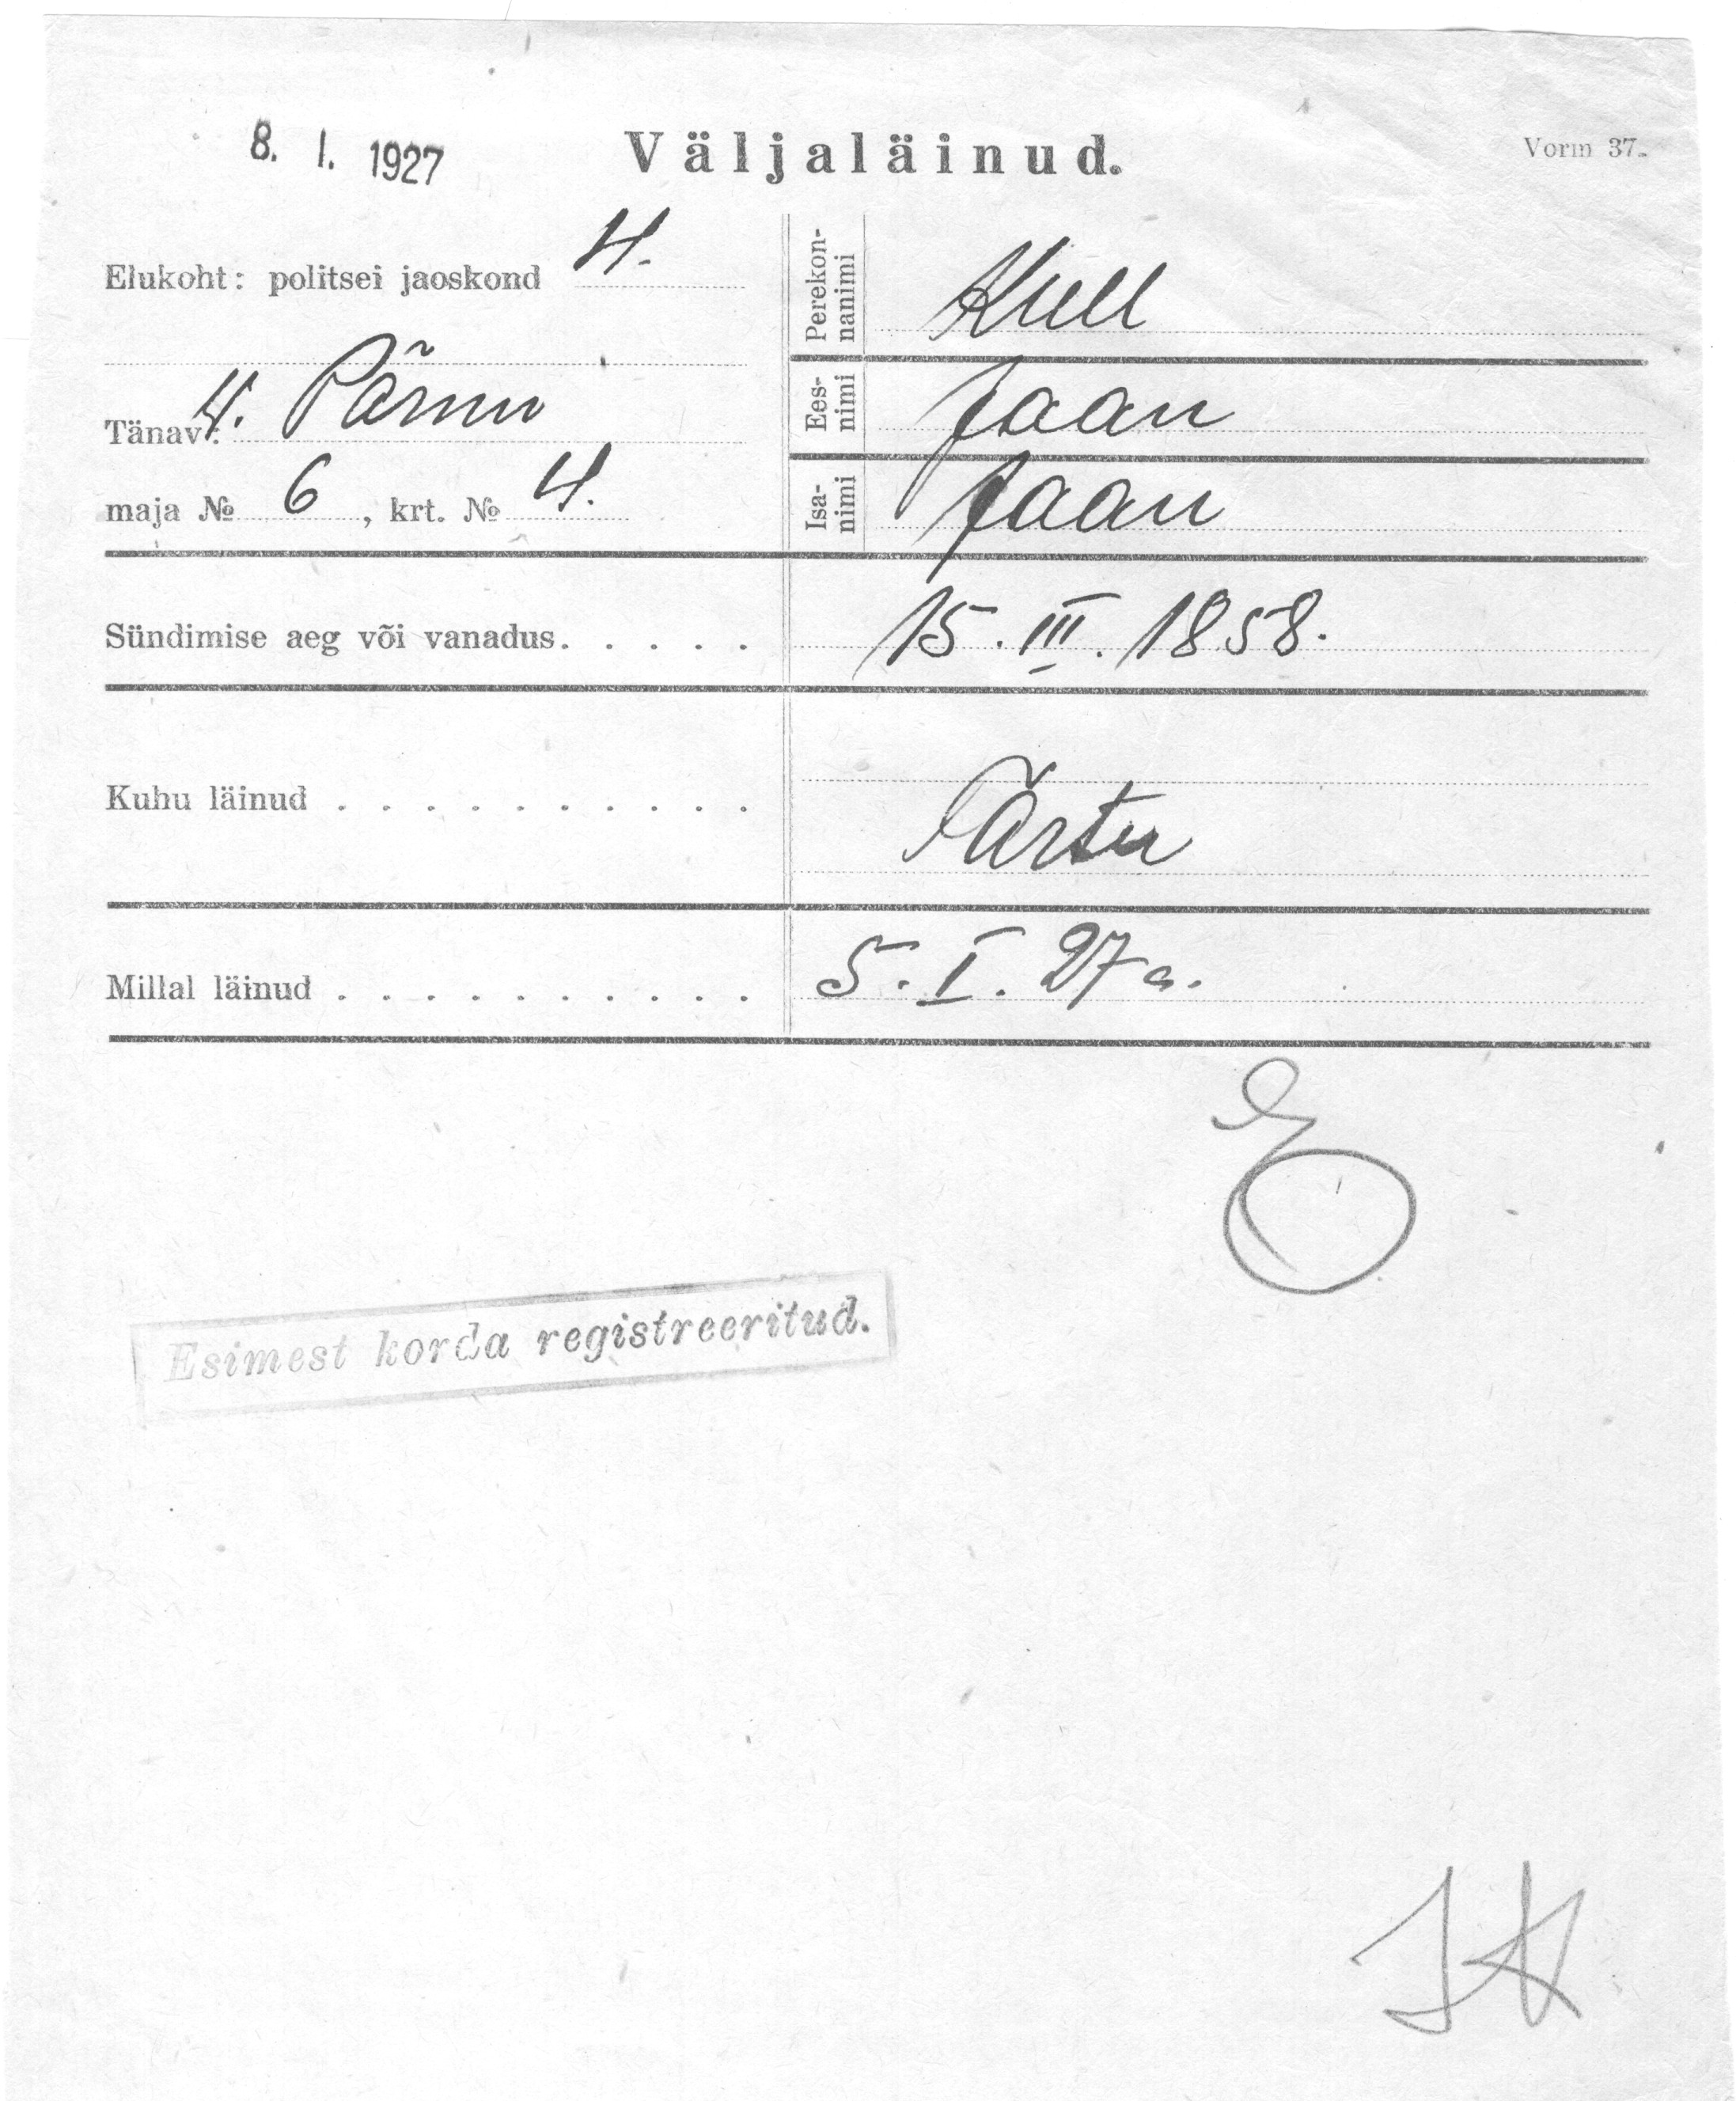 8. I. 1927
Väljaläinud.
Vorm 37.
Elukoht: politsei jaoskond 4.
Tänav: V. Pärnu
maja № 6, krt. № 4.
Perekon-
nanimi
Kull
Ees-
nimi
Jaan
Isa-
nimi
Jaan
Sündimise aeg või vanadus. . . . . 15. III. 1858.
Kuhu läinud . . . . . . . . . . Tartu
Millal läinud . . . . . . . . . . 5. I. 27 a.
Esimest korda registreeritud.